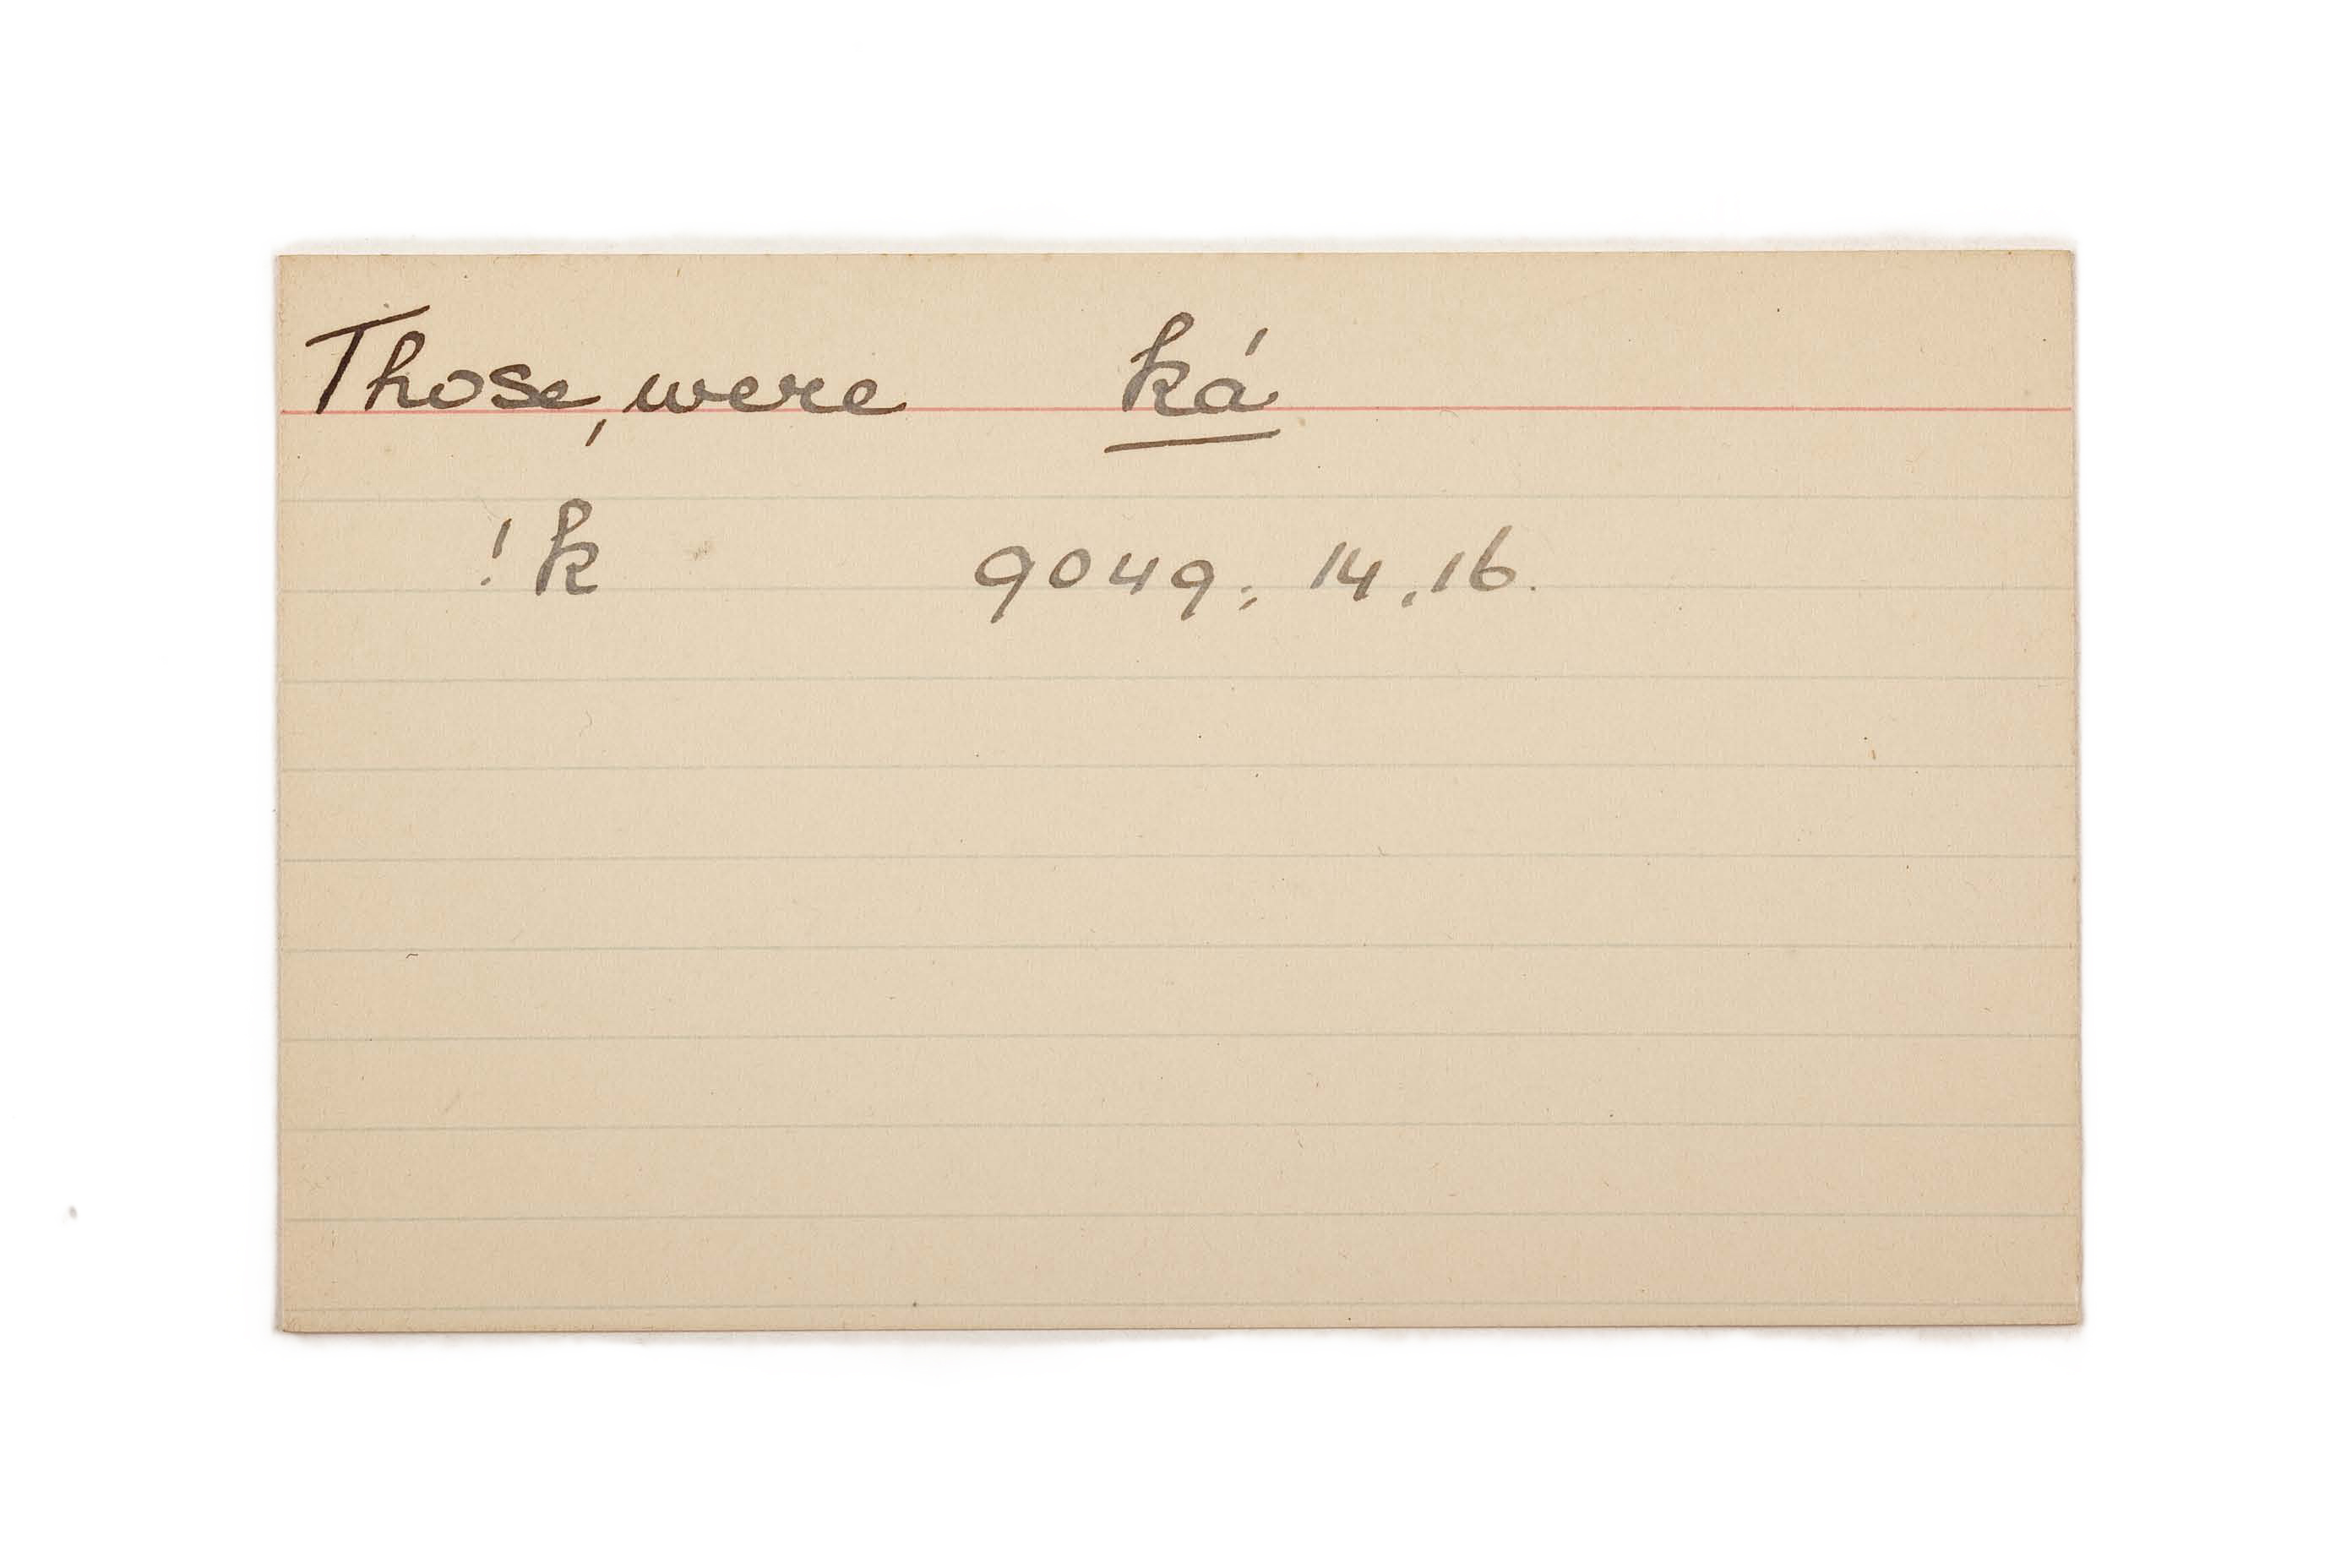 Those, were ká
!k 9049; 14, 16.